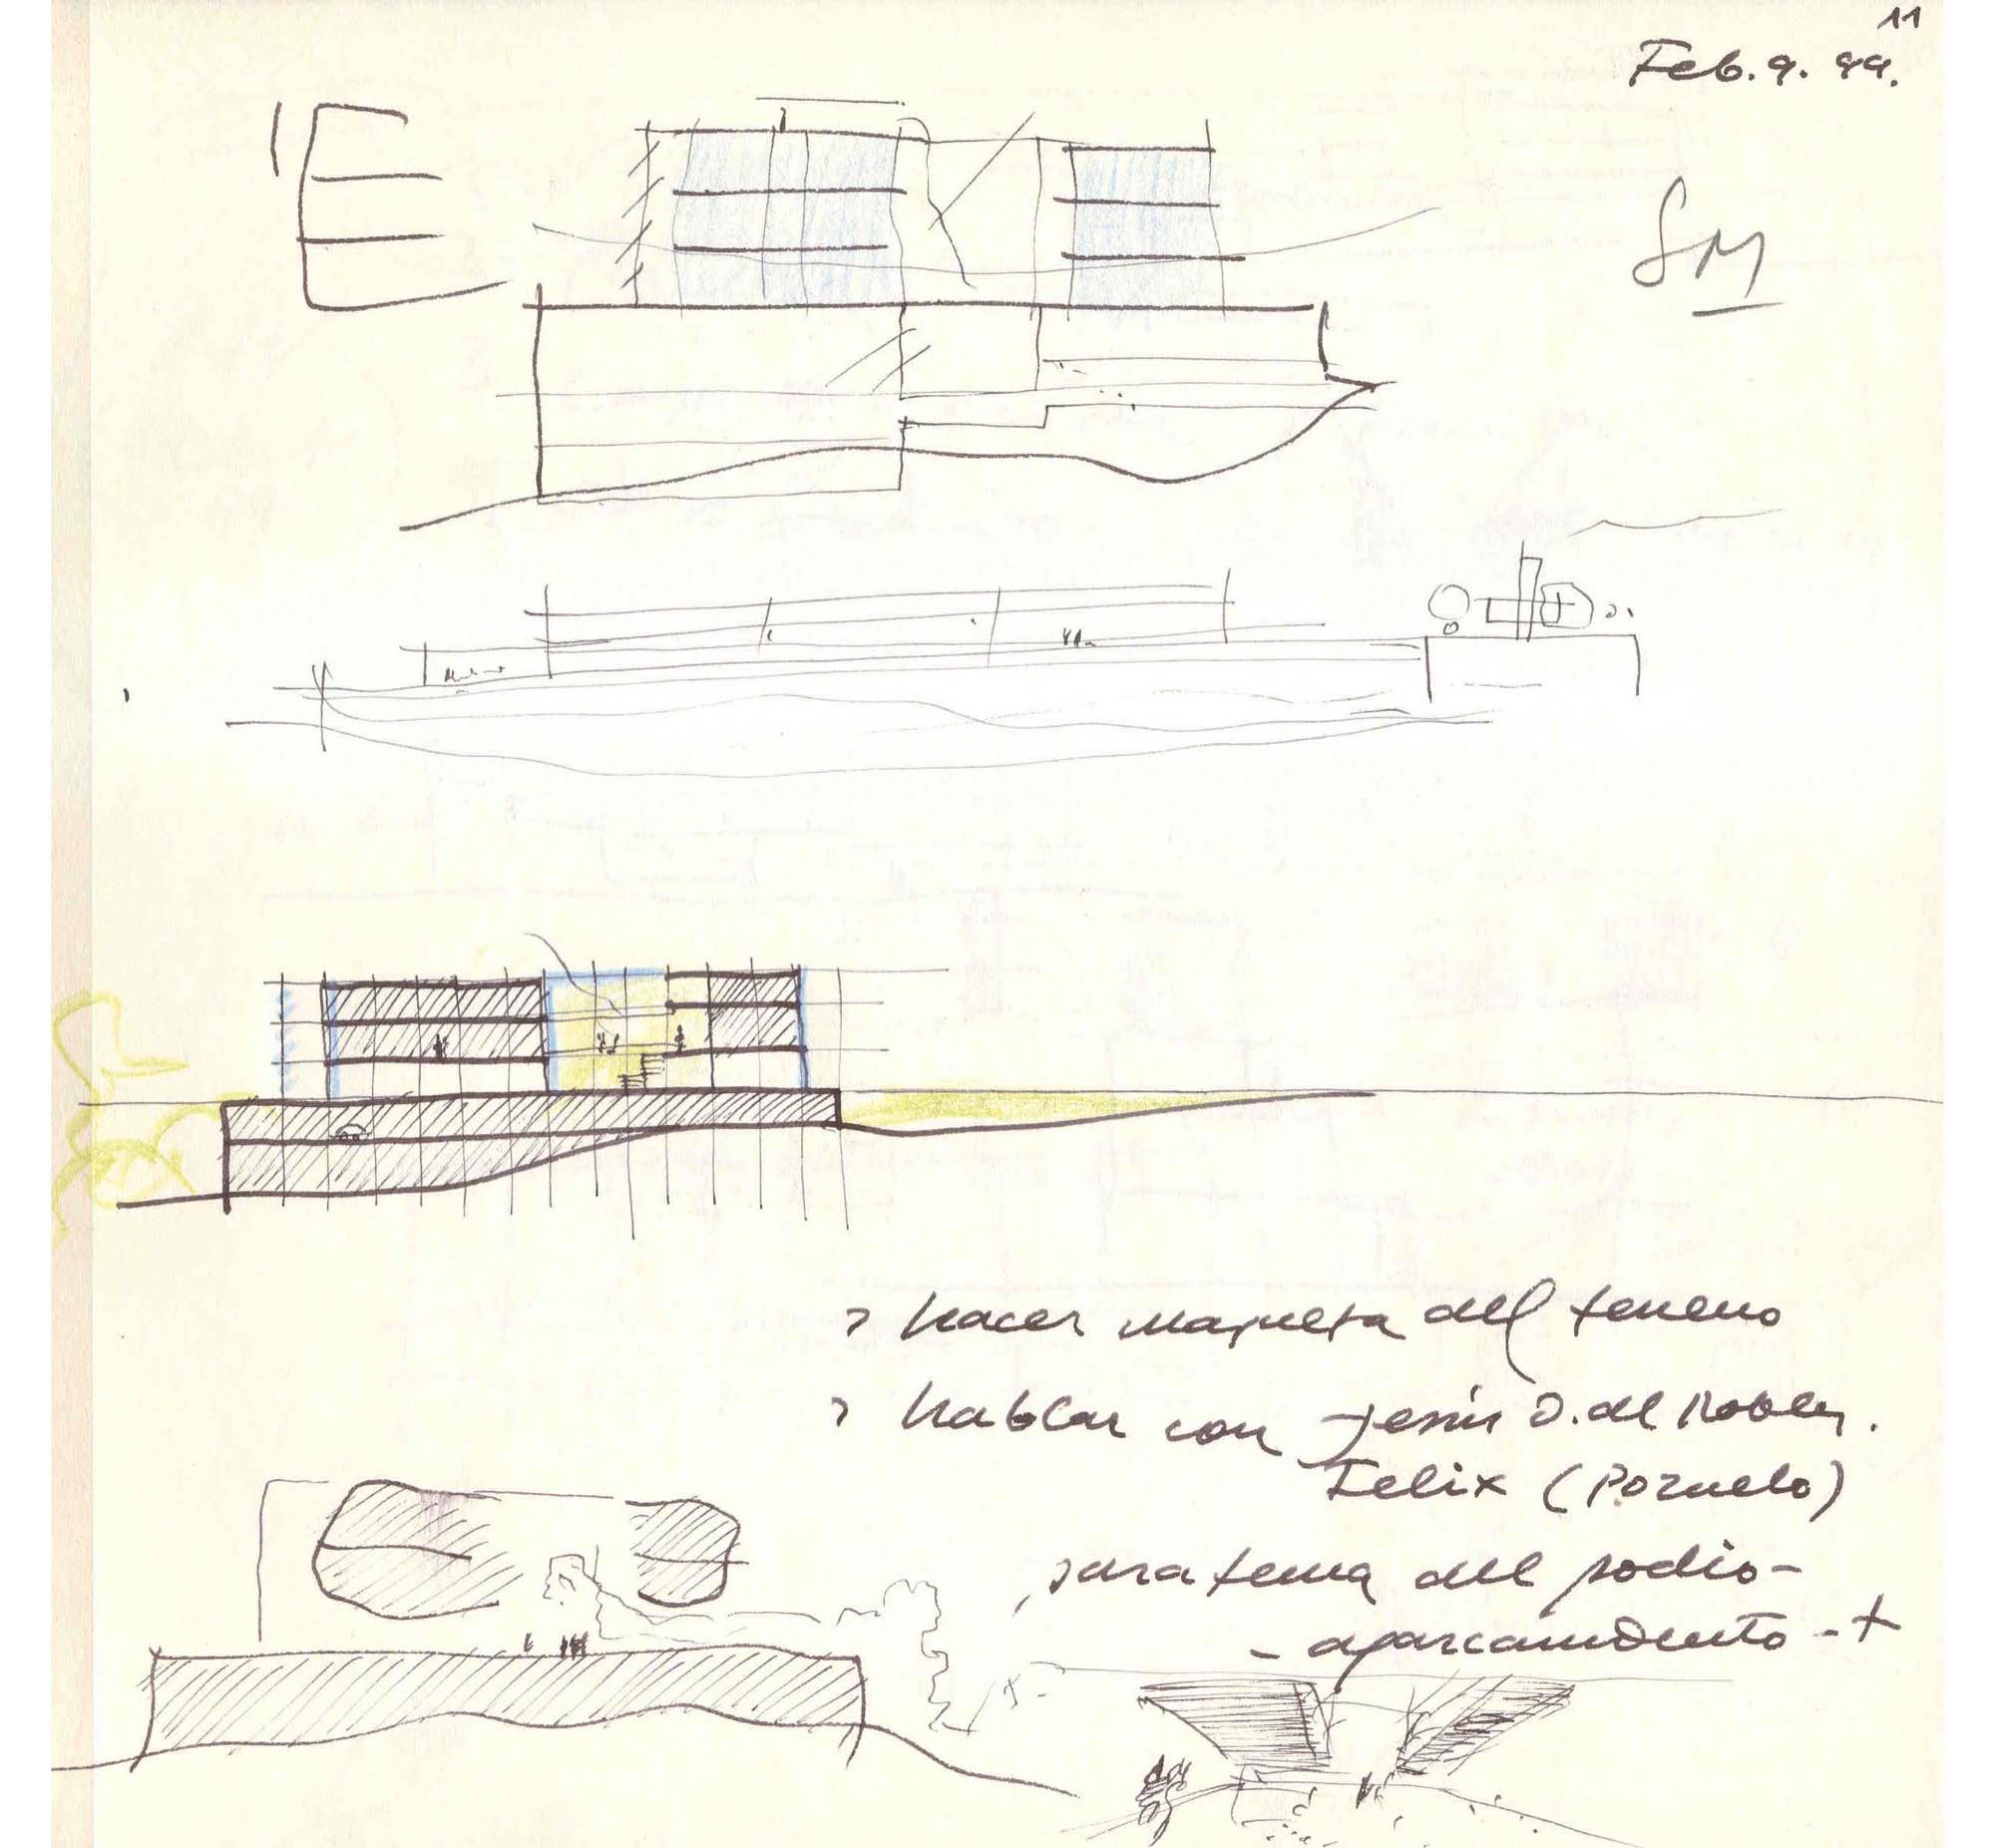 11
Feb. 9. 99.
SM
> hacer maqueta del terreno
> hablar con Jesús D. del Robley.
Felix (Pozuelo)
para tema del podio-
- aparcamiento - +